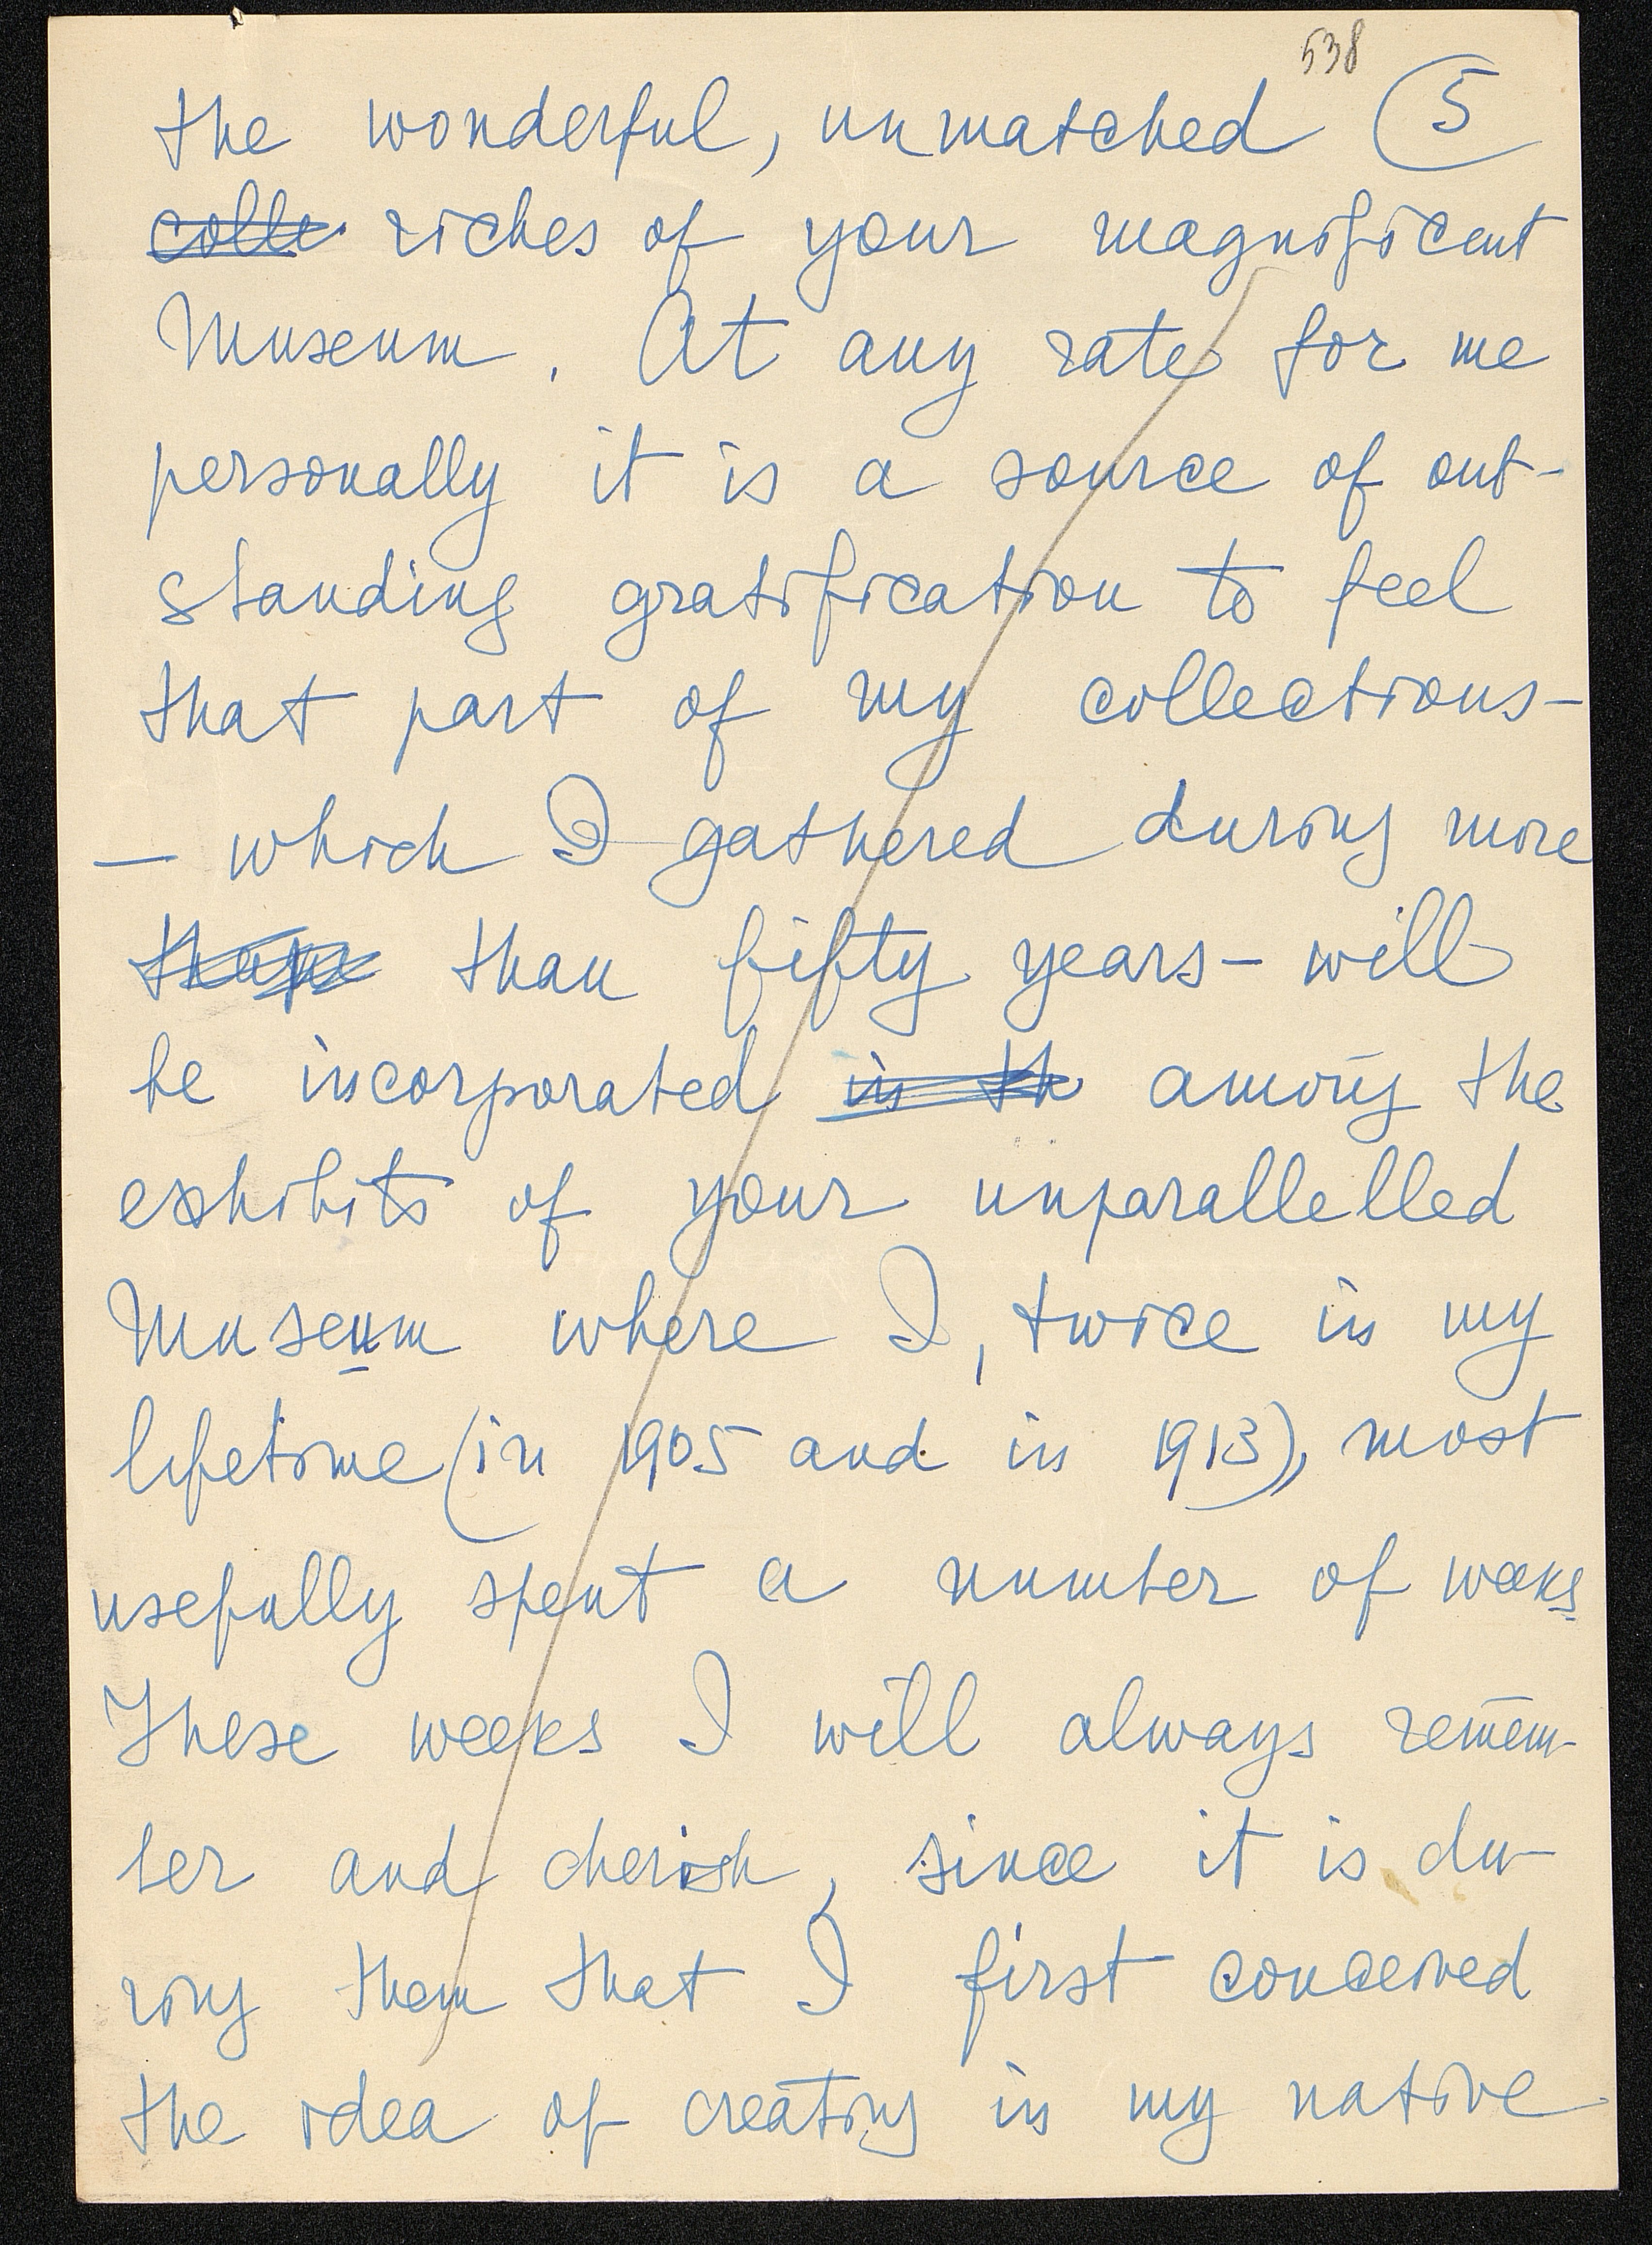 538
the wonderful, unmatched 5
colle riches of your magnificent
Museum. At any rate for me
personally it is a source of out-
standing gratification to feel
that part of my collections-
- which I gathered during more
than fifty years - will
be incorporated in th among the
exhibits of your unparallelled
Museum where I, twice in my
lifetime (in 1905 and in 1913), most
usefully spent a number of weeks
These weeks I will always remem-
ber and cherish, since it is du-
ring them that I first conceived
the idea of creating in my native